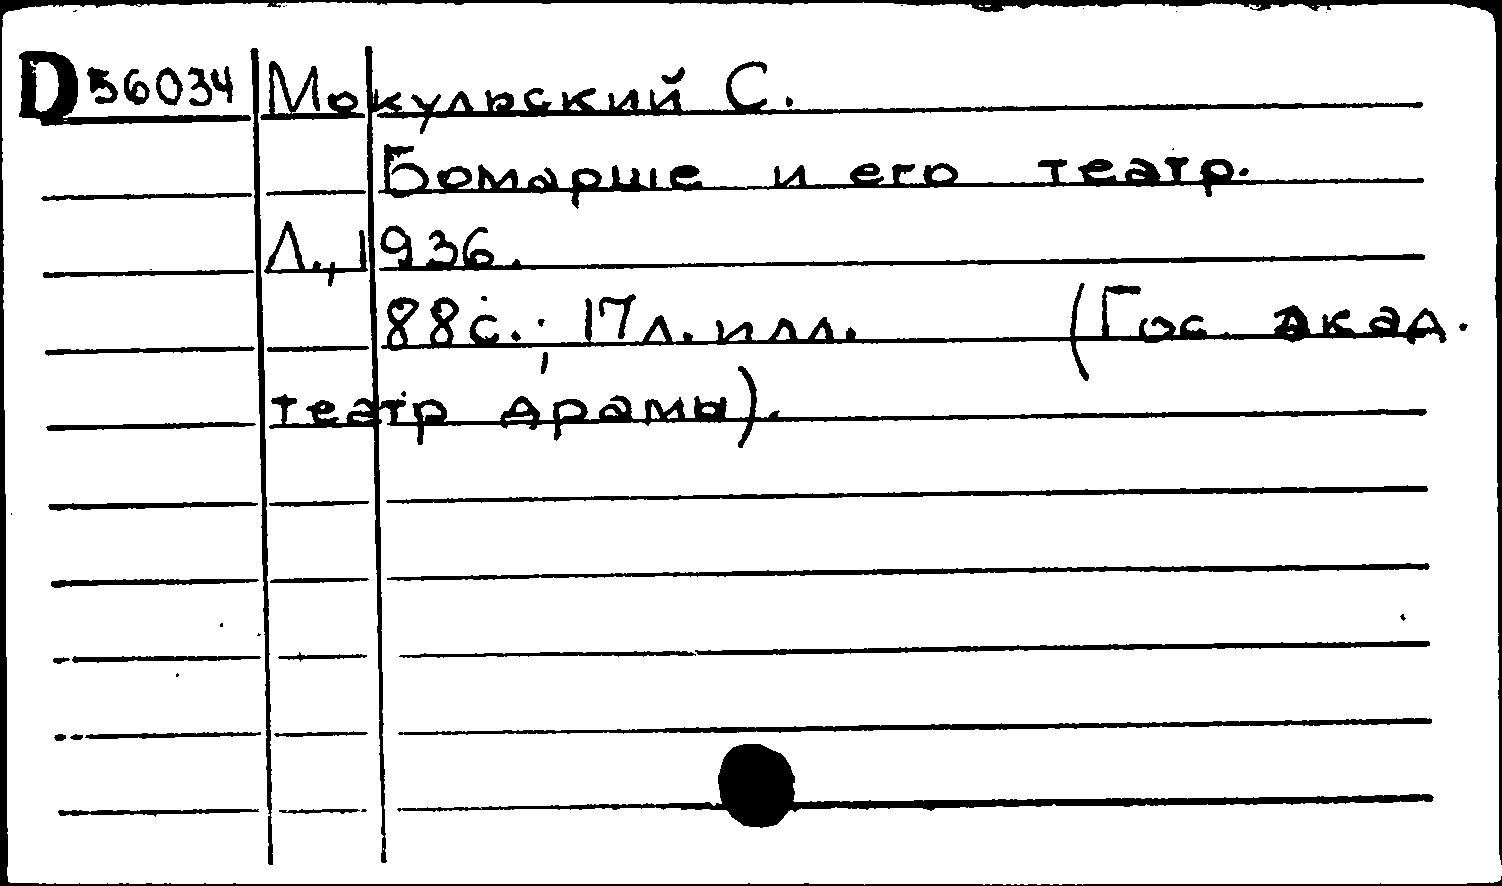 D 56034 Мокульский С.
Бомарше и его театр.
Л., 1936.
88с.; 17л. илл. (Гос. акад.
театр драмы).